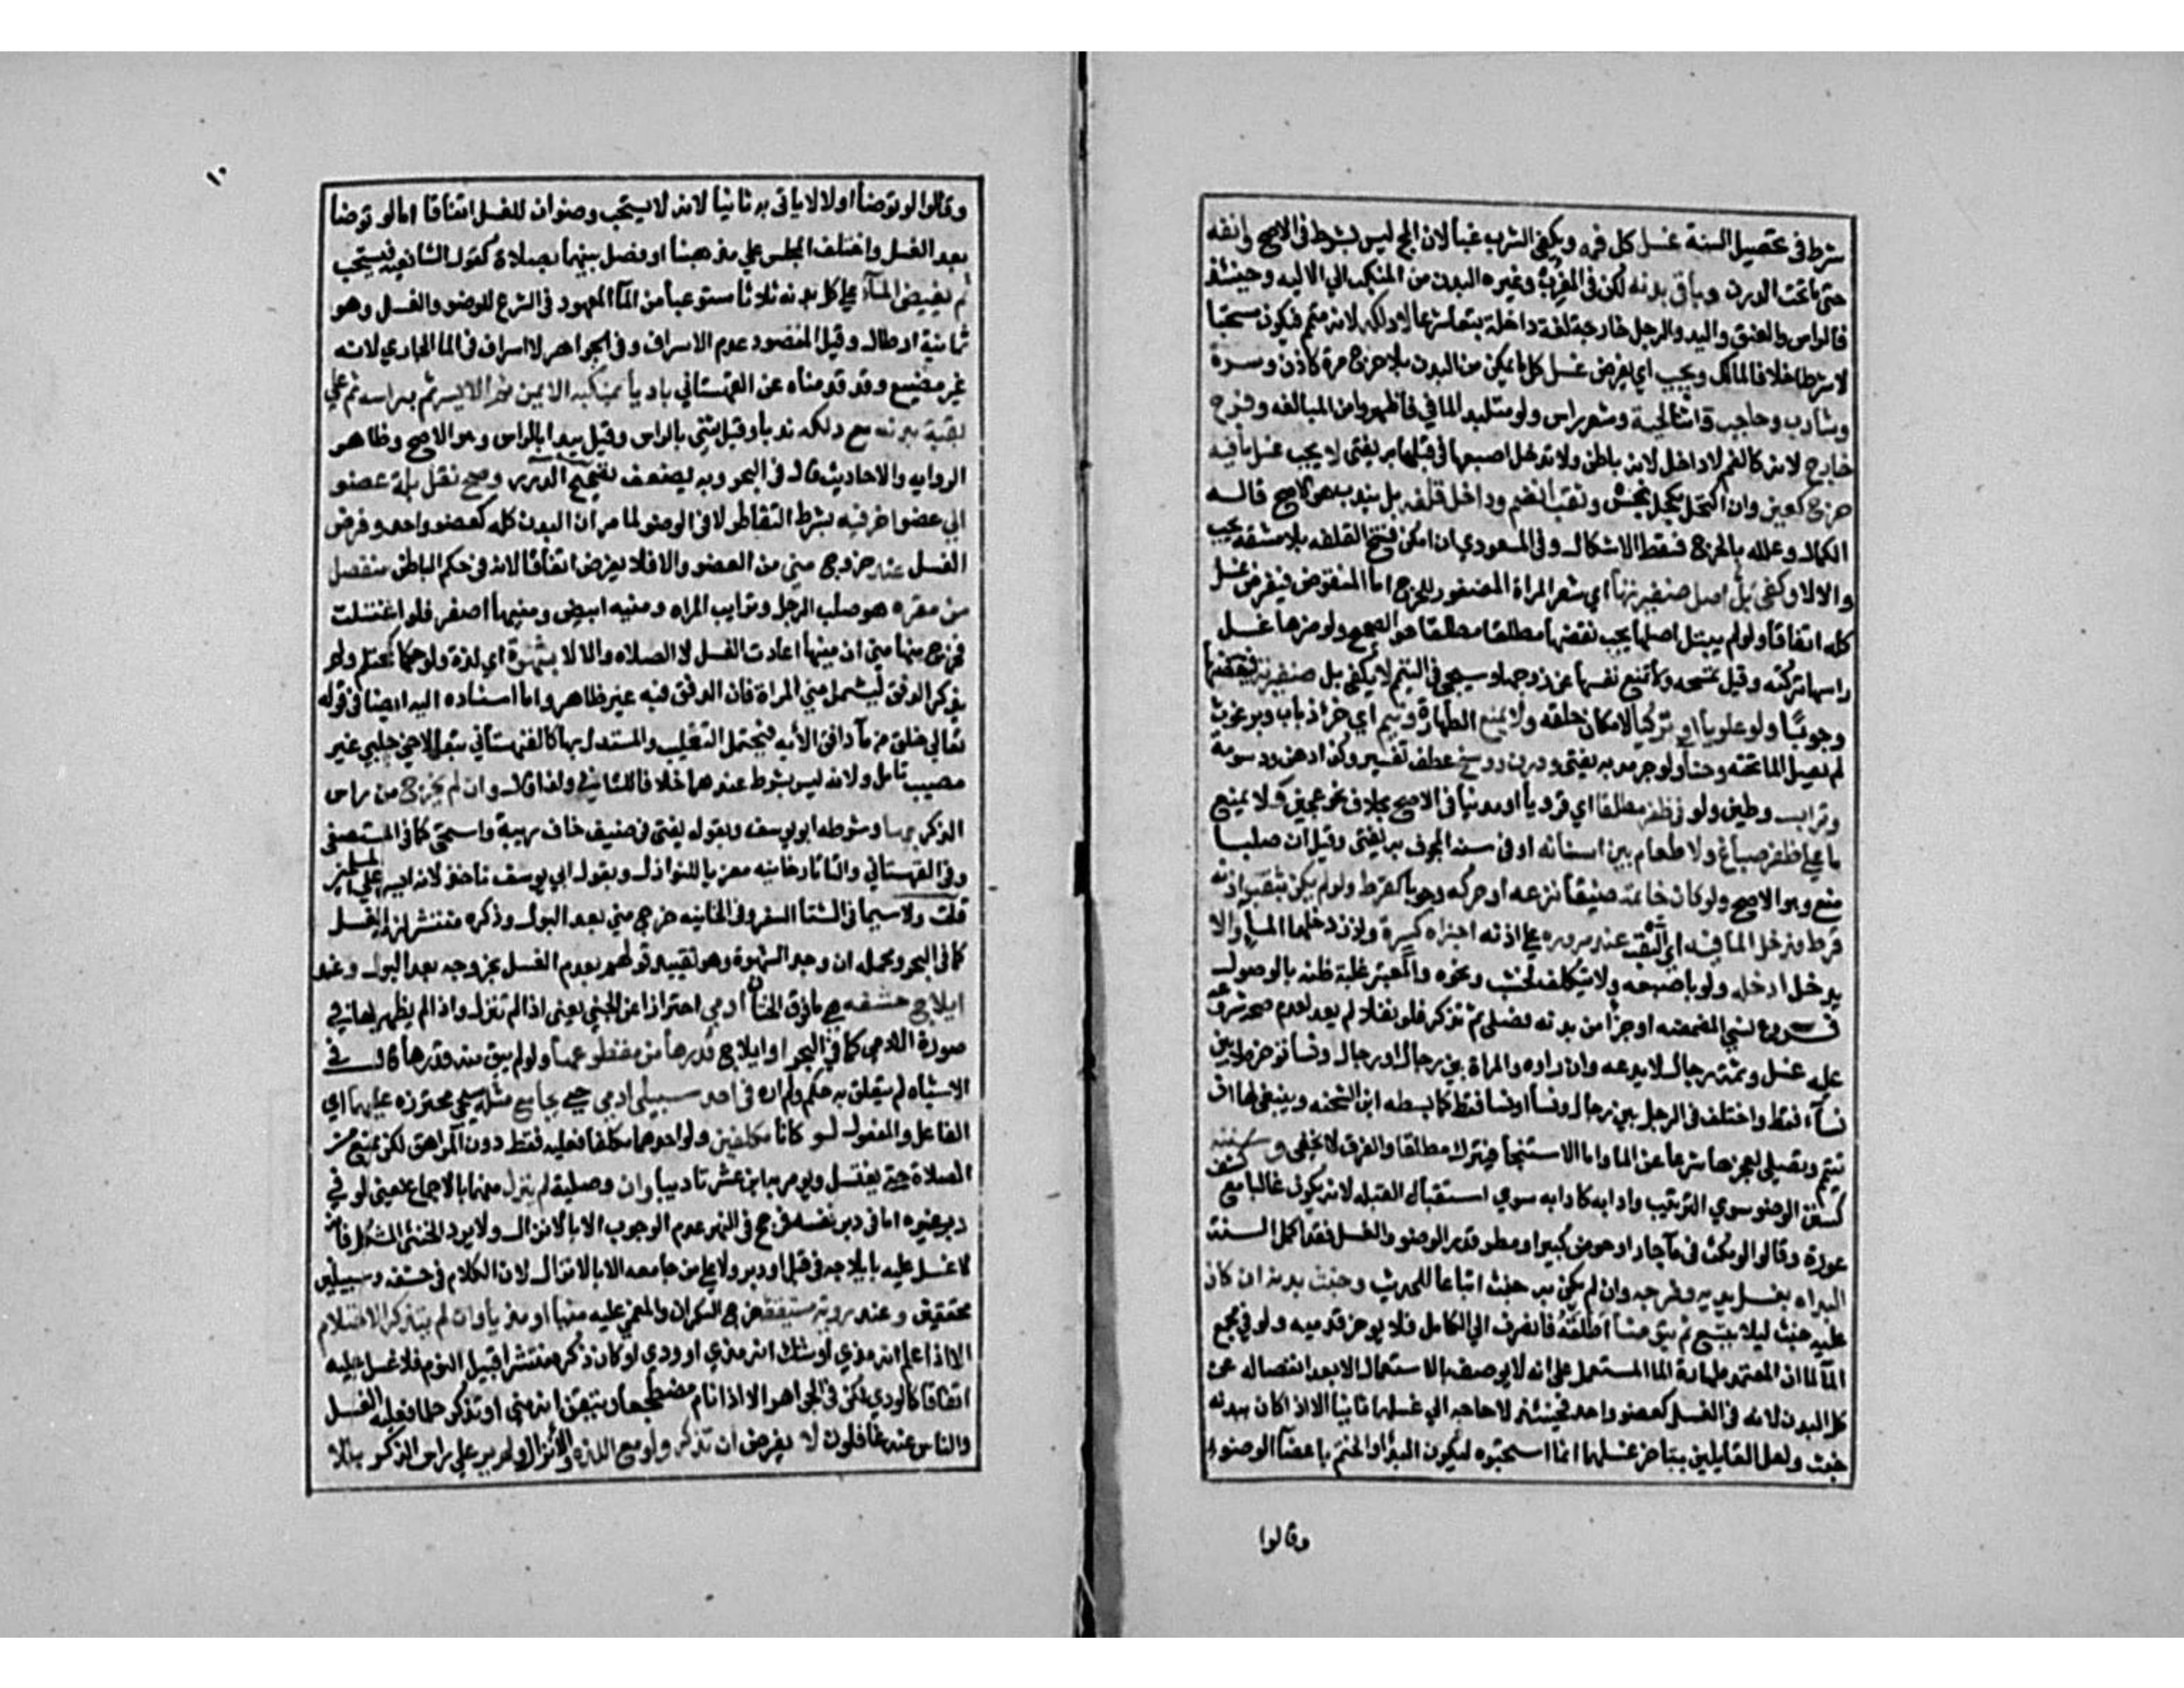 شرط في تحصيل السنة غسل كل فمه ويكفي الشرب عبا لان المج ليس بشرط في الاصح وانفه
حتى ما تحت الدرن وباقي بدنه لكن في المغرب وغيره البدن من المنكب الي الاليه وحينئذ
فالراس والعنق واليد والرجل خارجة لغة داخلة تبعا شرعا لا دلكه لانه متمم فيكون مستحبا
لا شرطا خلافا لمالك ويجب اي يفرض غسل كل ما يمكن من البدن بلا حرج مرة كاذن وسرة
وشارب وحاجب واثنا لحية وشعر راس ولو متلبد لما في فاطهروا من المبالغه وفرج
خارج لانه كالفم لا داخل لانه باطن ولا تدخل اصبعها في قبلها به يفتى لا يجب غسل ما فيه
حرج كعين وان اكتحل بكحل نجس وثقب انضم وداخل قلفه بل يندب هو الاصح قاله
الكمال وعلله بالحرج فسقط الاشكال وفي المسعودي ان امكن فتح القلفه بلا مشقه يجب
والا لا وكفى بل اصل ضفيرتها اي شعر المراة المضفور للحرج اما المنقوض فيفرض غسل
كله اتفاقا ولو لم يبتل اصلها يجب نقضها مطلقا هو الصحيح ولو ضرها غسل
راسها تركته وقيل تمسحه ولا تمنع نفسها عن زوجها وسيجي في التيمم لا يكفي بل ضفيرته فينقضها
وجوبًا ولو علويا او تركيا لامكان حلقه ولا يمنع الطهارة ونيم اي خرا ذباب وبرغوث
لم يصل الما تحته وحنا ولو جرمه به يفتى ودرن ووسخ عطف تفسير وكذا دهن ودسومة
وتراب وطين ولو في ظفر مطلقا اي قرويا او مدنيا في الاصح بخلاف نحو عجين ولا يمنع
ما على ظفر صباغ ولا طعام بين اسنانه او في سنه المجوف به يفتى وقيل ان صلبا
منع وهو الاصح ولو كان خاتمه ضيقا نزعه او حركه وجوبا كقرط ولو لم يكن بثقب اذنه
قرط فدخل الما فيه اي الثقب عند مروره على اذنه اجزاه كسرة واذن دخلها الما والا
يدخل ادخله ولو باصبعه ولا يتكلف لخشب ونحوه والمعتبر غلبة ظنه بالوصول
فروع نسي المضمضه او جزأ من بدنه فصلى ثم تذكر فلو نفلا لم يعد لعدم صحة شروعه
عليه غسل وثمة رجال لا يدعه وان راوه والمراة بين رجال او رجال ونسا توخره لا بين
نسآء فقط واختلف في الرجل بين رجال ونسا او نسا فقط كما بسطه ابن الشحنه وينبغي لها ان
تتيمم وتصلي لعجزها شرعا عن الما واما الاستنجا فيترك مطلقا والفرق لا يخفى وسننه
كسنن الوضو سوي الترتيب وادابه كادابه سوي استقبال القبله لانه يكون غالبا مع كشف
عورة وقالوا لو مكث في مآ جار او حوض كبير او مطر قدر الوضو والغسل فقد اكمل السنة
البداه بغسل يديه وفرجه وان لم يكن به خبث اتباعا للحديث وخبث بدنه ان كان
عليه خبث ليلا يشيع ثم يتوضأ اطلقه فانصرف الي الكامل فلا يوخر قدميه ولو في مجمع
المآ لما ان المعتمد طهارة الما المستعمل على انه لا يوصف بالاستعمال الا بعد انفصاله عن
كل البدن لانه في الغسل كعضو واحد فحينئذ لا حاجه الي غسلها ثانيا الا اذا كان ببدنه
خبث ولعل القايلين بتاخر غسلها انما استحبوه ليكون البدأ والختم باعضآ الوضوء
وقالوا
١٠
وقالوا لو توضأ اولا لا ياتي به ثانيا لانه لا يستحب وضوان للغسل اتفاقا اما لو توضا
بعد الغسل واختلف المجلس علي مذهبنا او فصل بينهما بصلاة كقول الشافعيه فيستحب
ثم يفيض المآ على كل بدنه ثلاثا مستوعبا من المآ المعهود في الشرع للوضو والغسل وهو
ثمانية ارطال وقيل المقصود عدم الاسراف وفي الجواهر لا اسراف في الما الجاري لانه
غير مضيع وقد قدمناه عن القهستاني باديا بمنكبه الايمن ثم الايسر ثم براسه ثم علي
بقية بدنه مع دلكه ندبا وقيل يثني بالراس وقيل يبدا بالراس وهو الاصح وظاهر
الروايه والاحاديث قال في البحر وبه يضعف تصحيح الدرر وصح نقل بلة عضو
الي عضو اخر فيه بشرط التقاطر لا في الوضو لما مر ان البدن كله كعضو واحد وفرض
الغسل عند خروج مني من العضو والا فلا يفرض اتفاقا لانه في حكم الباطن منفصل
من مقره هو صلب الرجل وترايب المراه ومنيه ابيض ومنيها اصفر فلو اغتسلت
فخرج منها مني ان منيها اعادت الغسل لا الصلاه والا لا بشهوة اي لذة ولو حكما كمحتلم ولم
يذكر الدفق ليشمل مني المراة فان الدفق فيه غير ظاهر واما اسناده اليه ايضا في قوله
تعالى خلق من مآ دافق الأيه فيحتمل التغليب والمستدل بها كالقهستاني تبعا لاخي جلبي غير
مصيب تامل ولانه ليس بشرط عندهما خلافا للثاني ولذا قال وان لم يخرج من راس
الذكر بها وشرطه ابو يوسف وبقوله يفتى في ضيف خاف ريبة واستحى كما في المستصفى
وفي القهستاني والتاتارخانيه معزيا للنوازل وبقول ابي يوسف ناخذ لانه ايسر على المسلمين
قلت ولا سيما في الشتا السفر وفي الخانيه خرج مني بعد البول وذكره منتشر لزمه الغسل
كما في البحر ومحمله ان وجد الشهوة وهو تقييد قولهم بعدم الغسل بخروجه بعد البول وعند
ايلاج حشفه هي ما فوق الختان ادمي احترازا عن الجني يعني اذا لم تنزل واذا لم يظهر لها في
صورة الادمي كما في البحر او ايلاج قدرها من مقطوعها ولو لم يبق منه قدرها قال في
الاشباه لم يتعلق به حكم ولم اره في احد سبيلي ادمي حي يجامع مثله سيجي محترزه عليهما اي
الفاعل والمفعول لو كانا مكلفين ولو احدهما مكلفا فعليه فقط دون المراهق لكن يمنع من
الصلاة حتى يغتسل ويومر به ابن عشر تاديبا وان وصلية لم ينزل منيا بالاجماع يعني لو في
دبر غيره اما في دبر نفسه فرجح في النهر عدم الوجوب الا بالانزال ولا يرد الخنثى المشكل فانه
لا غسل عليه بايلاجه في قبل او دبر ولا على من جامعه الا بالانزال لان الكلام في حشفه وسبيلين
محققين وعند روية مستيقظ خرج السكران والمغمى عليه منيا او مذيا وان لم يتذكر الاحتلام
الا اذا علم انه مذي او شك انه مذي او ودي او كان ذكره منتشرا قبيل النوم فلا غسل عليه
اتفاقا كالودي لكن في الجواهر الا اذا نام مضطجعا او تيقن انه مني او تذكر حلما فعليه الغسل
والناس عنه غافلون لا يفرض ان تذكر ولو مع اللذة والانزال ولم ير علي راس الذكر بللا